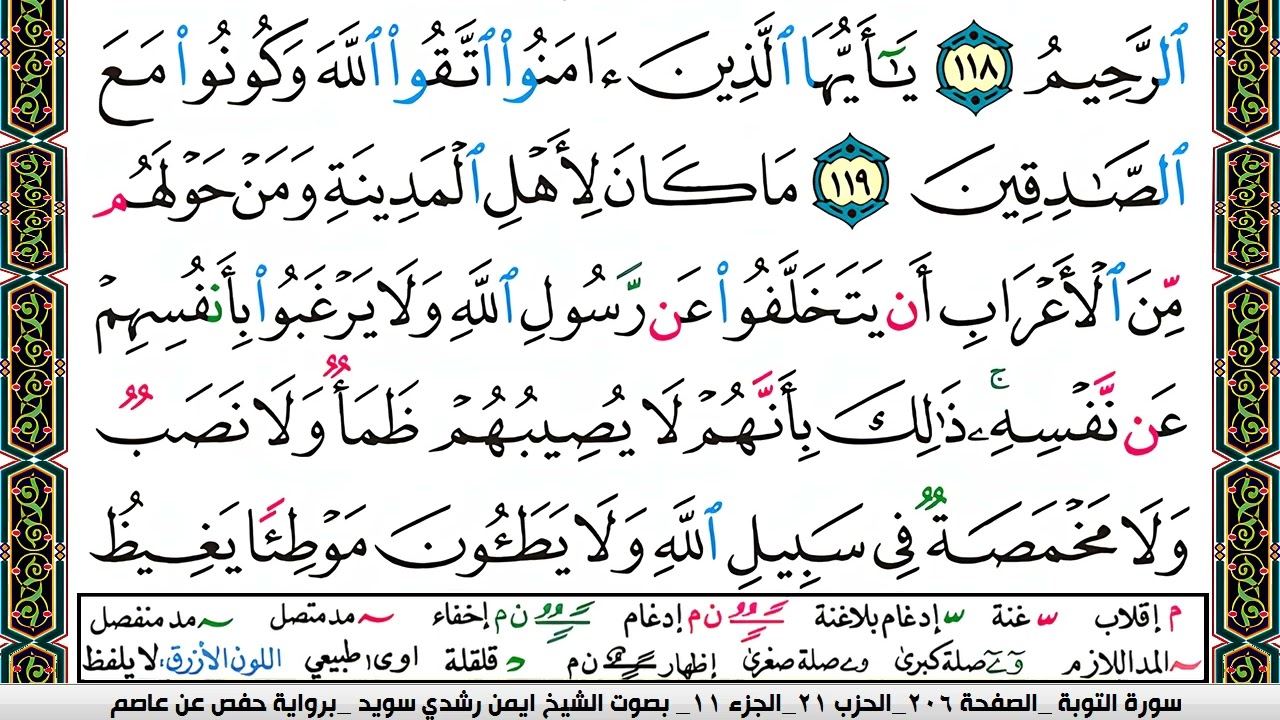 ٱلرَّحِيمُ ١١٨ يَـٰٓأَيُّهَا ٱلَّذِينَ ءَامَنُوا۟ ٱتَّقُوا۟ ٱللَّهَ وَكُونُوا۟ مَعَ
ٱلصَّـٰدِقِينَ ١١٩ مَا كَانَ لِأَهْلِ ٱلْمَدِينَةِ وَمَنْ حَوْلَهُم
مِّنَ ٱلْأَعْرَابِ أَن يَتَخَلَّفُوا۟ عَن رَّسُولِ ٱللَّهِ وَلَا يَرْغَبُوا۟ بِأَنفُسِهِمْ
عَن نَّفْسِهِۦ ۚ ذَٰلِكَ بِأَنَّهُمْ لَا يُصِيبُهُمْ ظَمَأٌ وَلَا نَصَبٌ
وَلَا مَخْمَصَةٌ فِى سَبِيلِ ٱللَّهِ وَلَا يَطَـُٔونَ مَوْطِئًا يَغِيظُ
م إقلاب س غنة س إدغام بلاغنة ن م إدغام ن م إخفاء ~ مد متصل ~ مد منفصل
~ المد اللازم وۓ صلة كبرى وے صلة صغرى إظهار ن م د قلقلة اوى طبيعي اللون الأزرق: لا يلفظ
سورة التوبة _الصفحة ٢٠٦_الحزب ٢١_الجزء ١١_ بصوت الشيخ ايمن رشدي سويد _برواية حفص عن عاصم